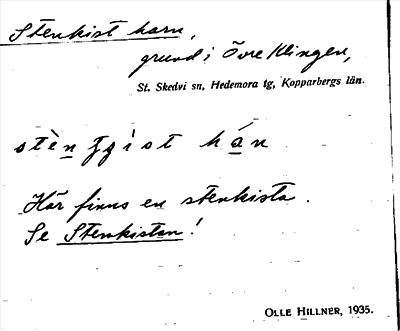 Stenkist harn,
grund i Övre Klingen,
St. Skedvi sn, Hedemora tg, Kopparbergs län.
Här finns en stenkista.
Se Stenkistan!
OLLE HILLNER, 1935.